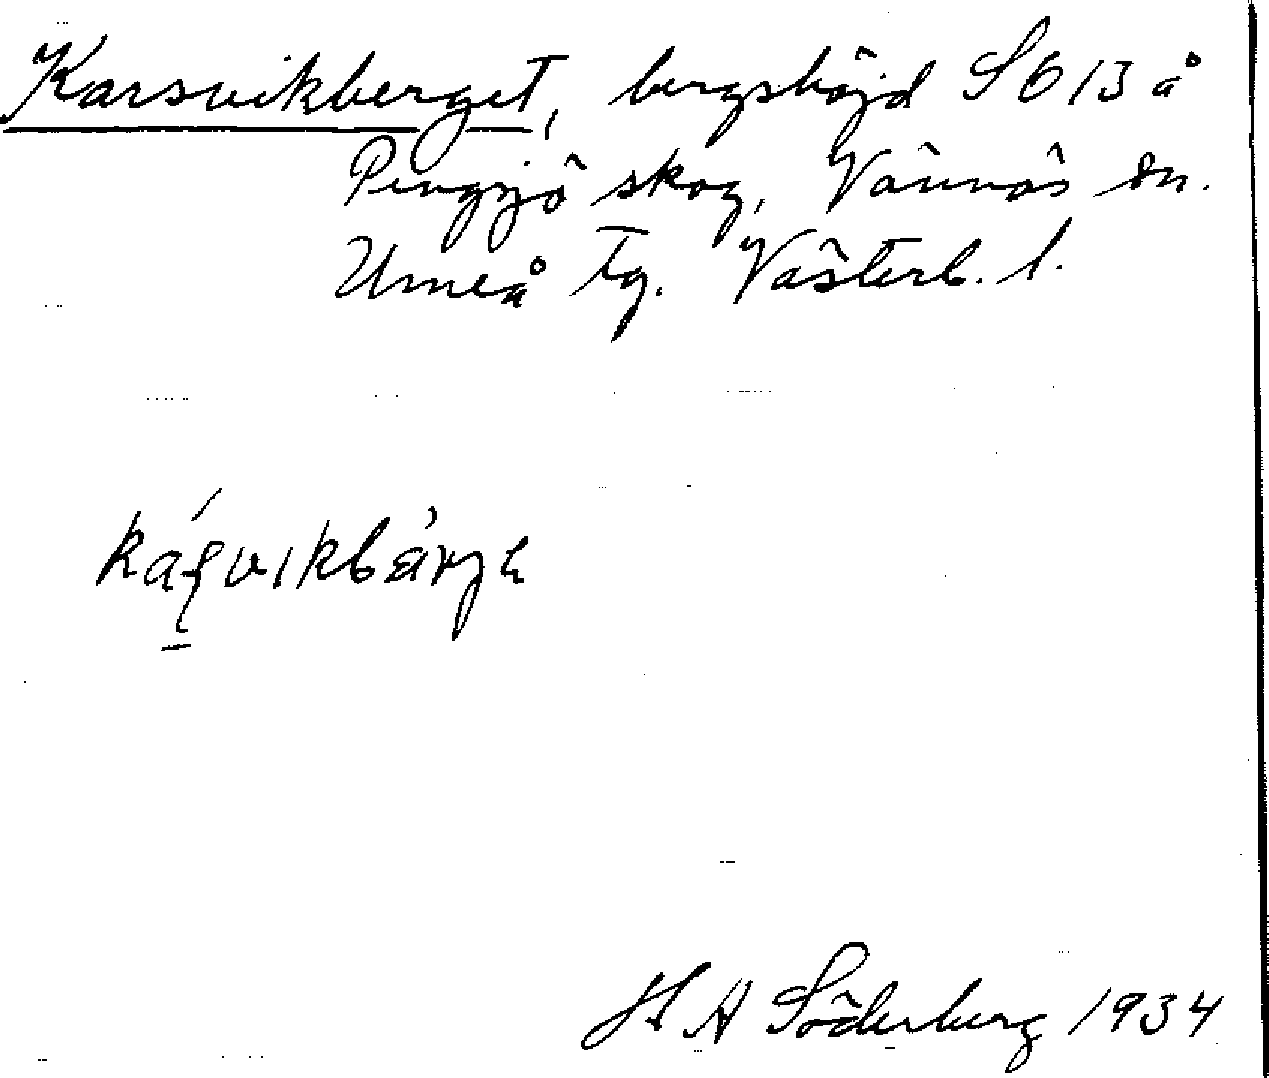 Karsvikberget, bergshöjd S613 å
Pengsjö skog, Vännäs sn.
Umeå tg. Västerb. l.
H A Söderberg 1934